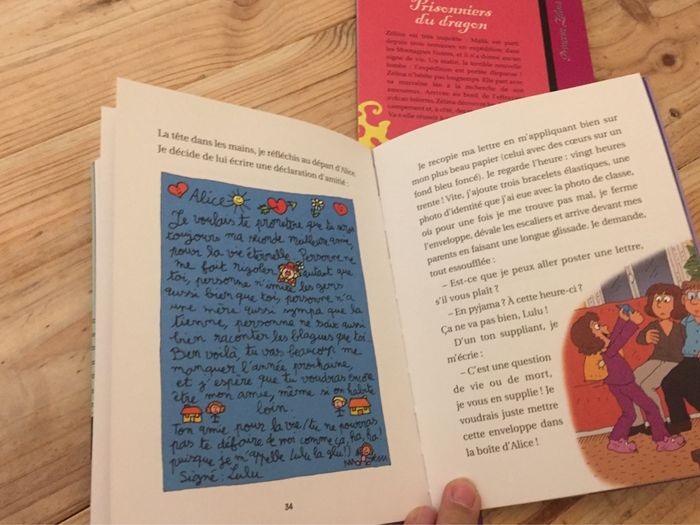 Prisonniers
du dragon
Zélina est très inquiète : Malik est parti
depuis trois semaines en expédition dans
les Montagnes Noires, et il n'a donné aucun
signe de vie. Un matin, la terrible nouvelle
tombe : l'expédition est portée disparue !
Zélina n'hésite pas longtemps. Elle part avec
sa marraine fée à la recherche de son
amoureux. Arrivée au bord de
Zélina découvre
campement et, à côté, des
Va-t-elle réussir à
La tête dans les mains, je réfléchis au départ d'Alice.
Je décide de lui écrire une déclaration d'amitié :
Alice
Je voulais te promettre que tu seras
toujours ma seconde meilleure amie,
pour la vie éternelle. Personne ne
me fait rigoler autant que
toi, personne n'imite les gens
aussi bien que toi, personne n'a
une mère aussi sympa que la
tienne, personne ne sait aussi
bien raconter les blagues que toi.
Ben voilà, tu vas beaucoup me
manquer l'année prochaine,
et j'espère que tu voudras encore
être mon amie, même si on habite
loin.
Ton amie pour la vie (tu ne pourras
pas te défaire de moi comme ça, ha, ha !
puisque je m'appelle Lulu la glu !)
Signé : Lulu
34
Je recopie ma lettre en m'appliquant bien sur
mon plus beau papier (celui avec des cœurs sur un
fond bleu foncé). Je regarde l'heure : vingt heures
trente ! Vite, j'ajoute trois bracelets élastiques, une
photo d'identité que j'ai eue avec la photo de classe,
où pour une fois je me trouve pas mal, je ferme
l'enveloppe, dévale les escaliers et arrive devant mes
parents en faisant une longue glissade. Je demande,
tout essoufflée :
– Est-ce que je peux aller poster une lettre,
s'il vous plaît ?
– En pyjama ? À cette heure-ci ?
Ça ne va pas bien, Lulu !
D'un ton suppliant, je
m'écrie :
– C'est une question
de vie ou de mort,
je vous en supplie ! Je
voudrais juste mettre
cette enveloppe dans
la boîte d'Alice !